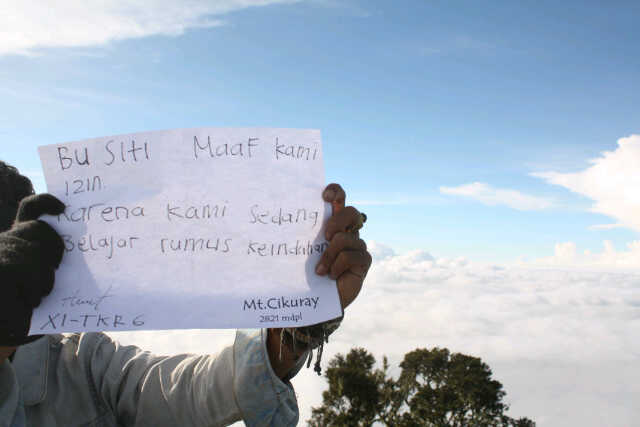 BU SITI MaaF kami
izin.
karena kami sedang
Belajar rumus keindahan
XI-TKR 6
Mt.Cikuray
2821 mdpl